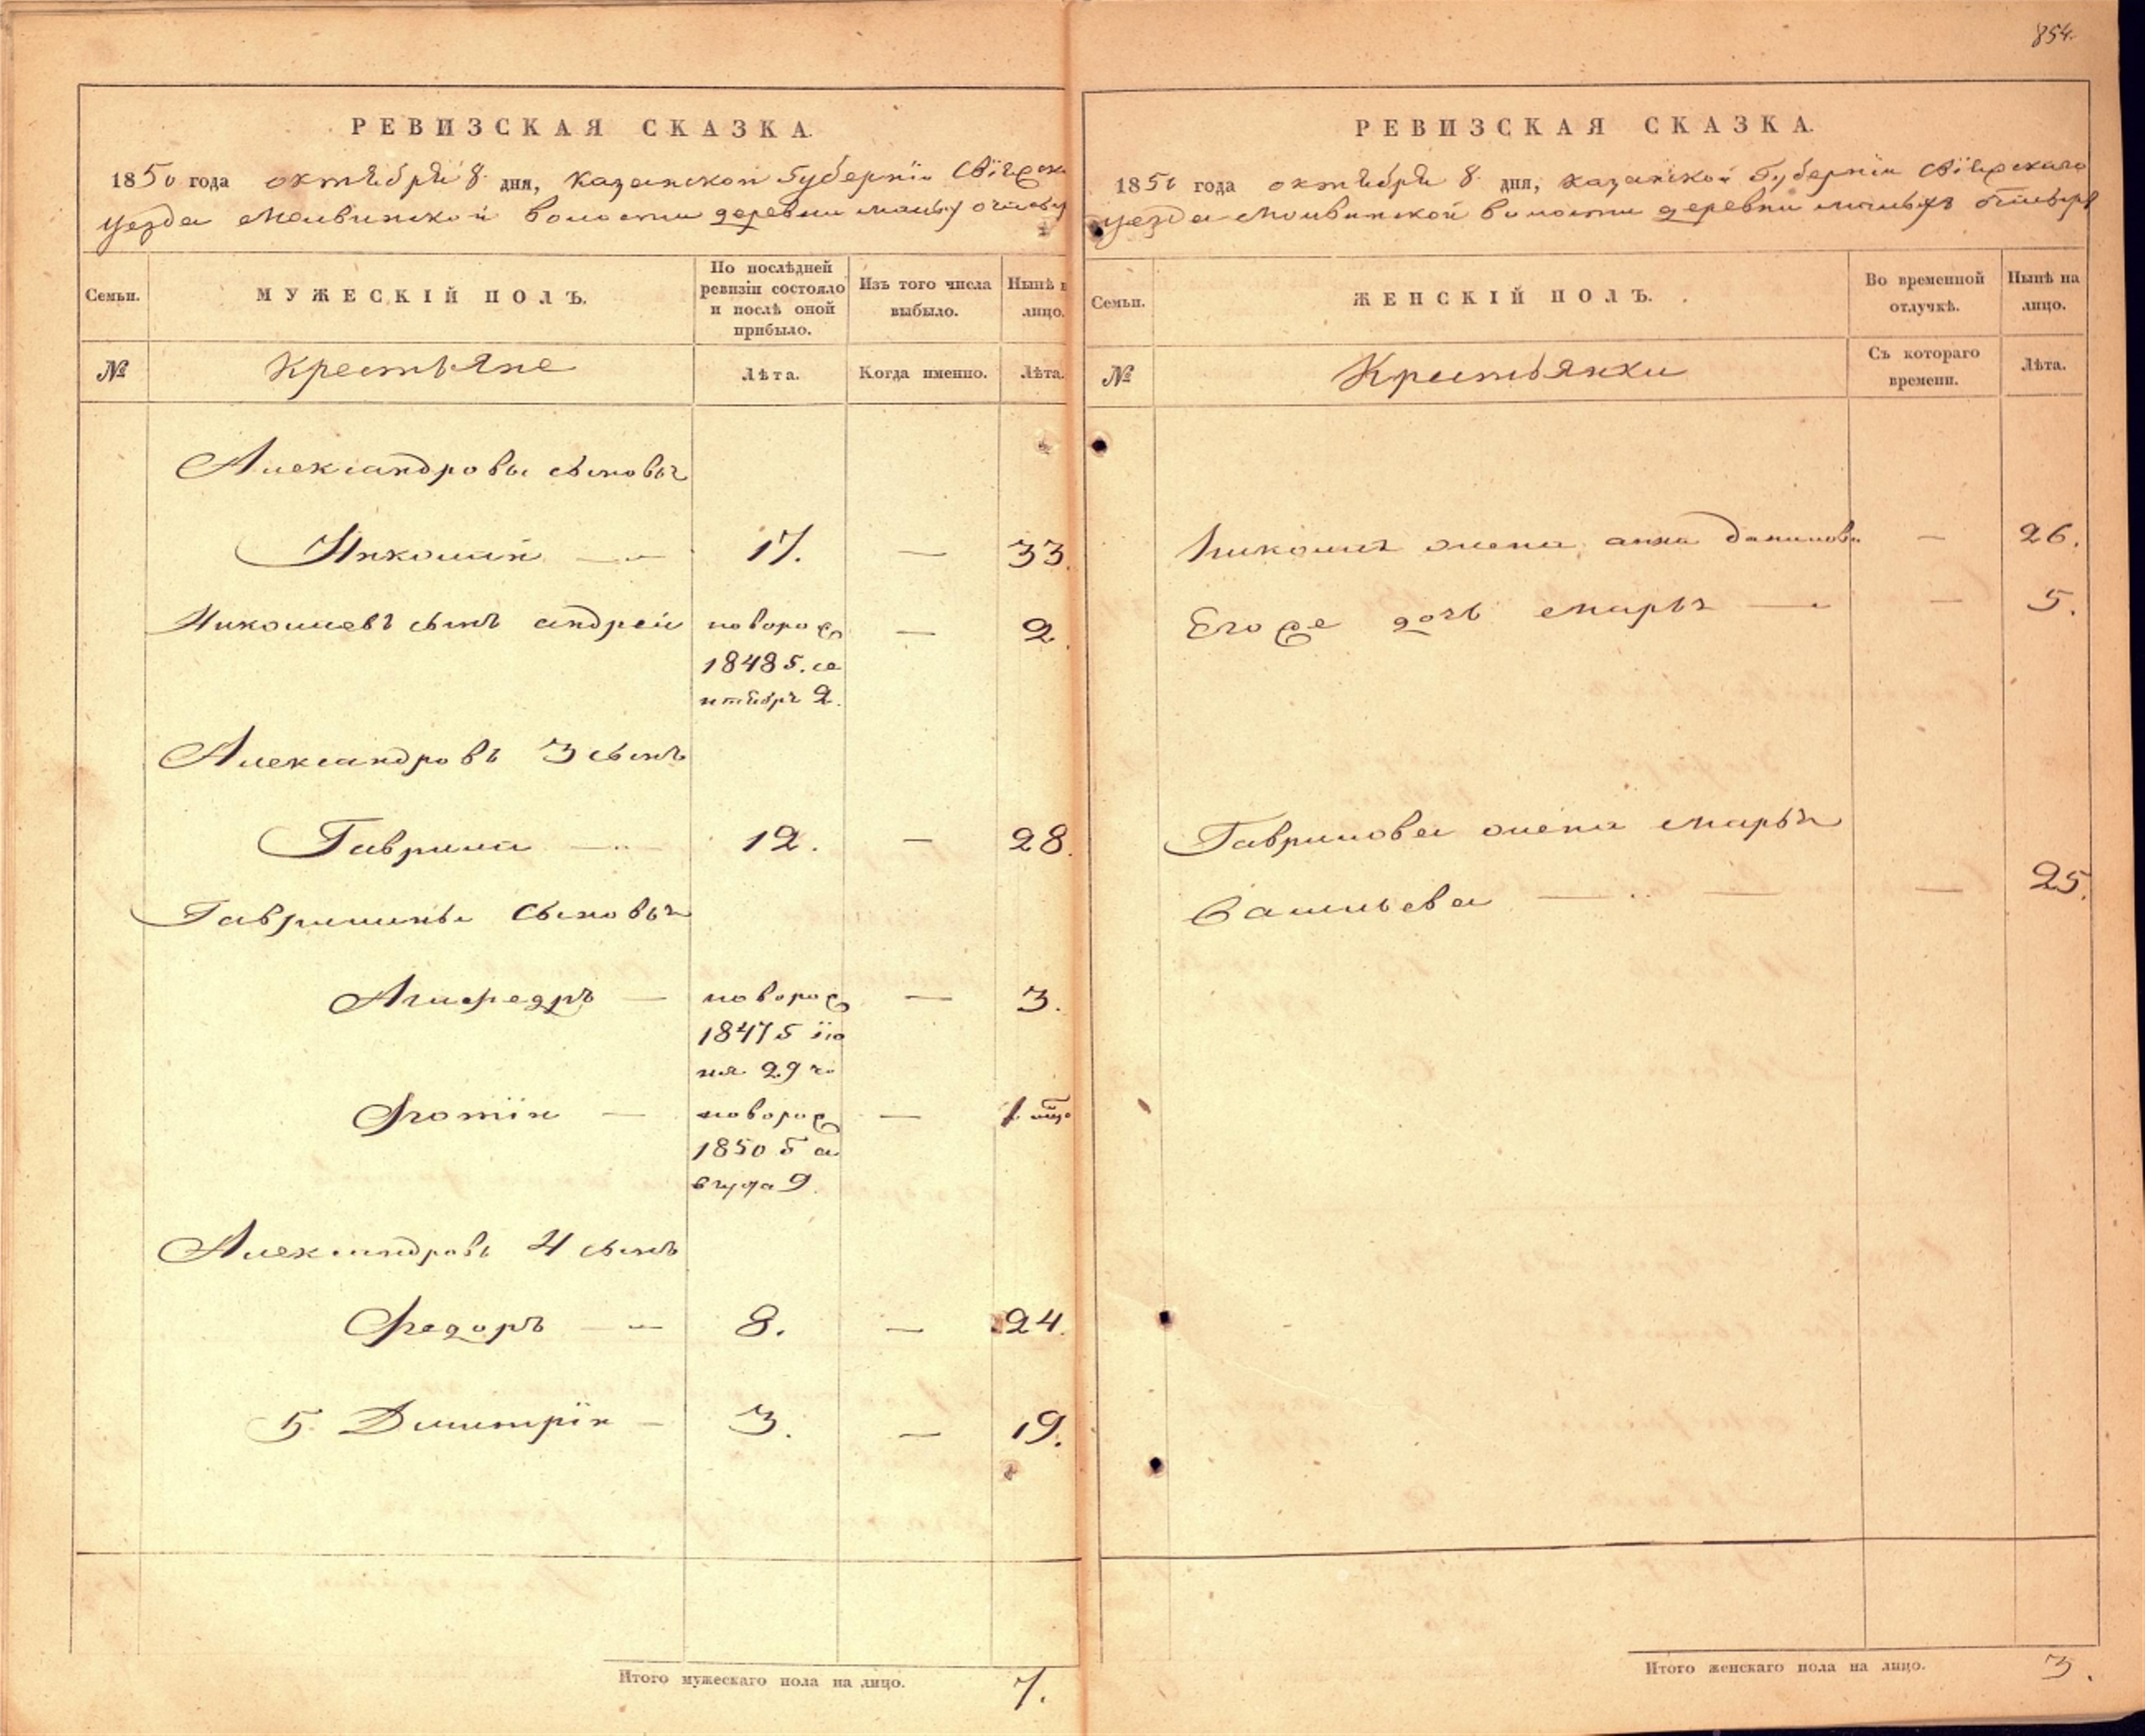 854.
РЕВИЗСКАЯ СКАЗКА
1850 года октября 8 дня, Казанской губерніи
уезда волости деревни малыхъ
Семьи.
МУЖЕСКІЙ ПОЛЪ.
По послѣдней ревизіи состояло и послѣ оной прибыло.
Изъ того числа выбыло.
Нынѣ н лицо.
№
Крестьяне
Лѣта.
Когда именно.
Лѣта.
Александровы сыновья
Николай — 17. — 33.
Николаевъ сынъ андрей новорож — 2.
1848 г. се
нтября 2.
Александровъ 3 сынъ
Гаврила — 12. — 28.
Гавриловы сыновья
новорож — 3.
1847 г ію
ня 29 ч.
Фотій — новорож —
1850 г а
вгуста 9.
Александровъ 4 сынъ
Федоръ — 8. — 24.
5. Дмитрій — 3. — 19.
Итого мужескаго пола на лицо. 7.
РЕВИЗСКАЯ СКАЗКА.
1850 года октября 8 дня, Казанской губерніи Свіяжскаго
уезда волости деревни малыхъ
Семьи.
ЖЕНСКІЙ ПОЛЪ.
Во временной отлучкѣ.
Нынѣ на лицо.
№
Крестьянки
Съ котораго времени.
Лѣта.
Николая жена анна данилова — 26.
Егоже дочь марья — — 5.
Гаврилова жена марья
Васильева — — — 25.
Итого женскаго пола на лицо. 3.